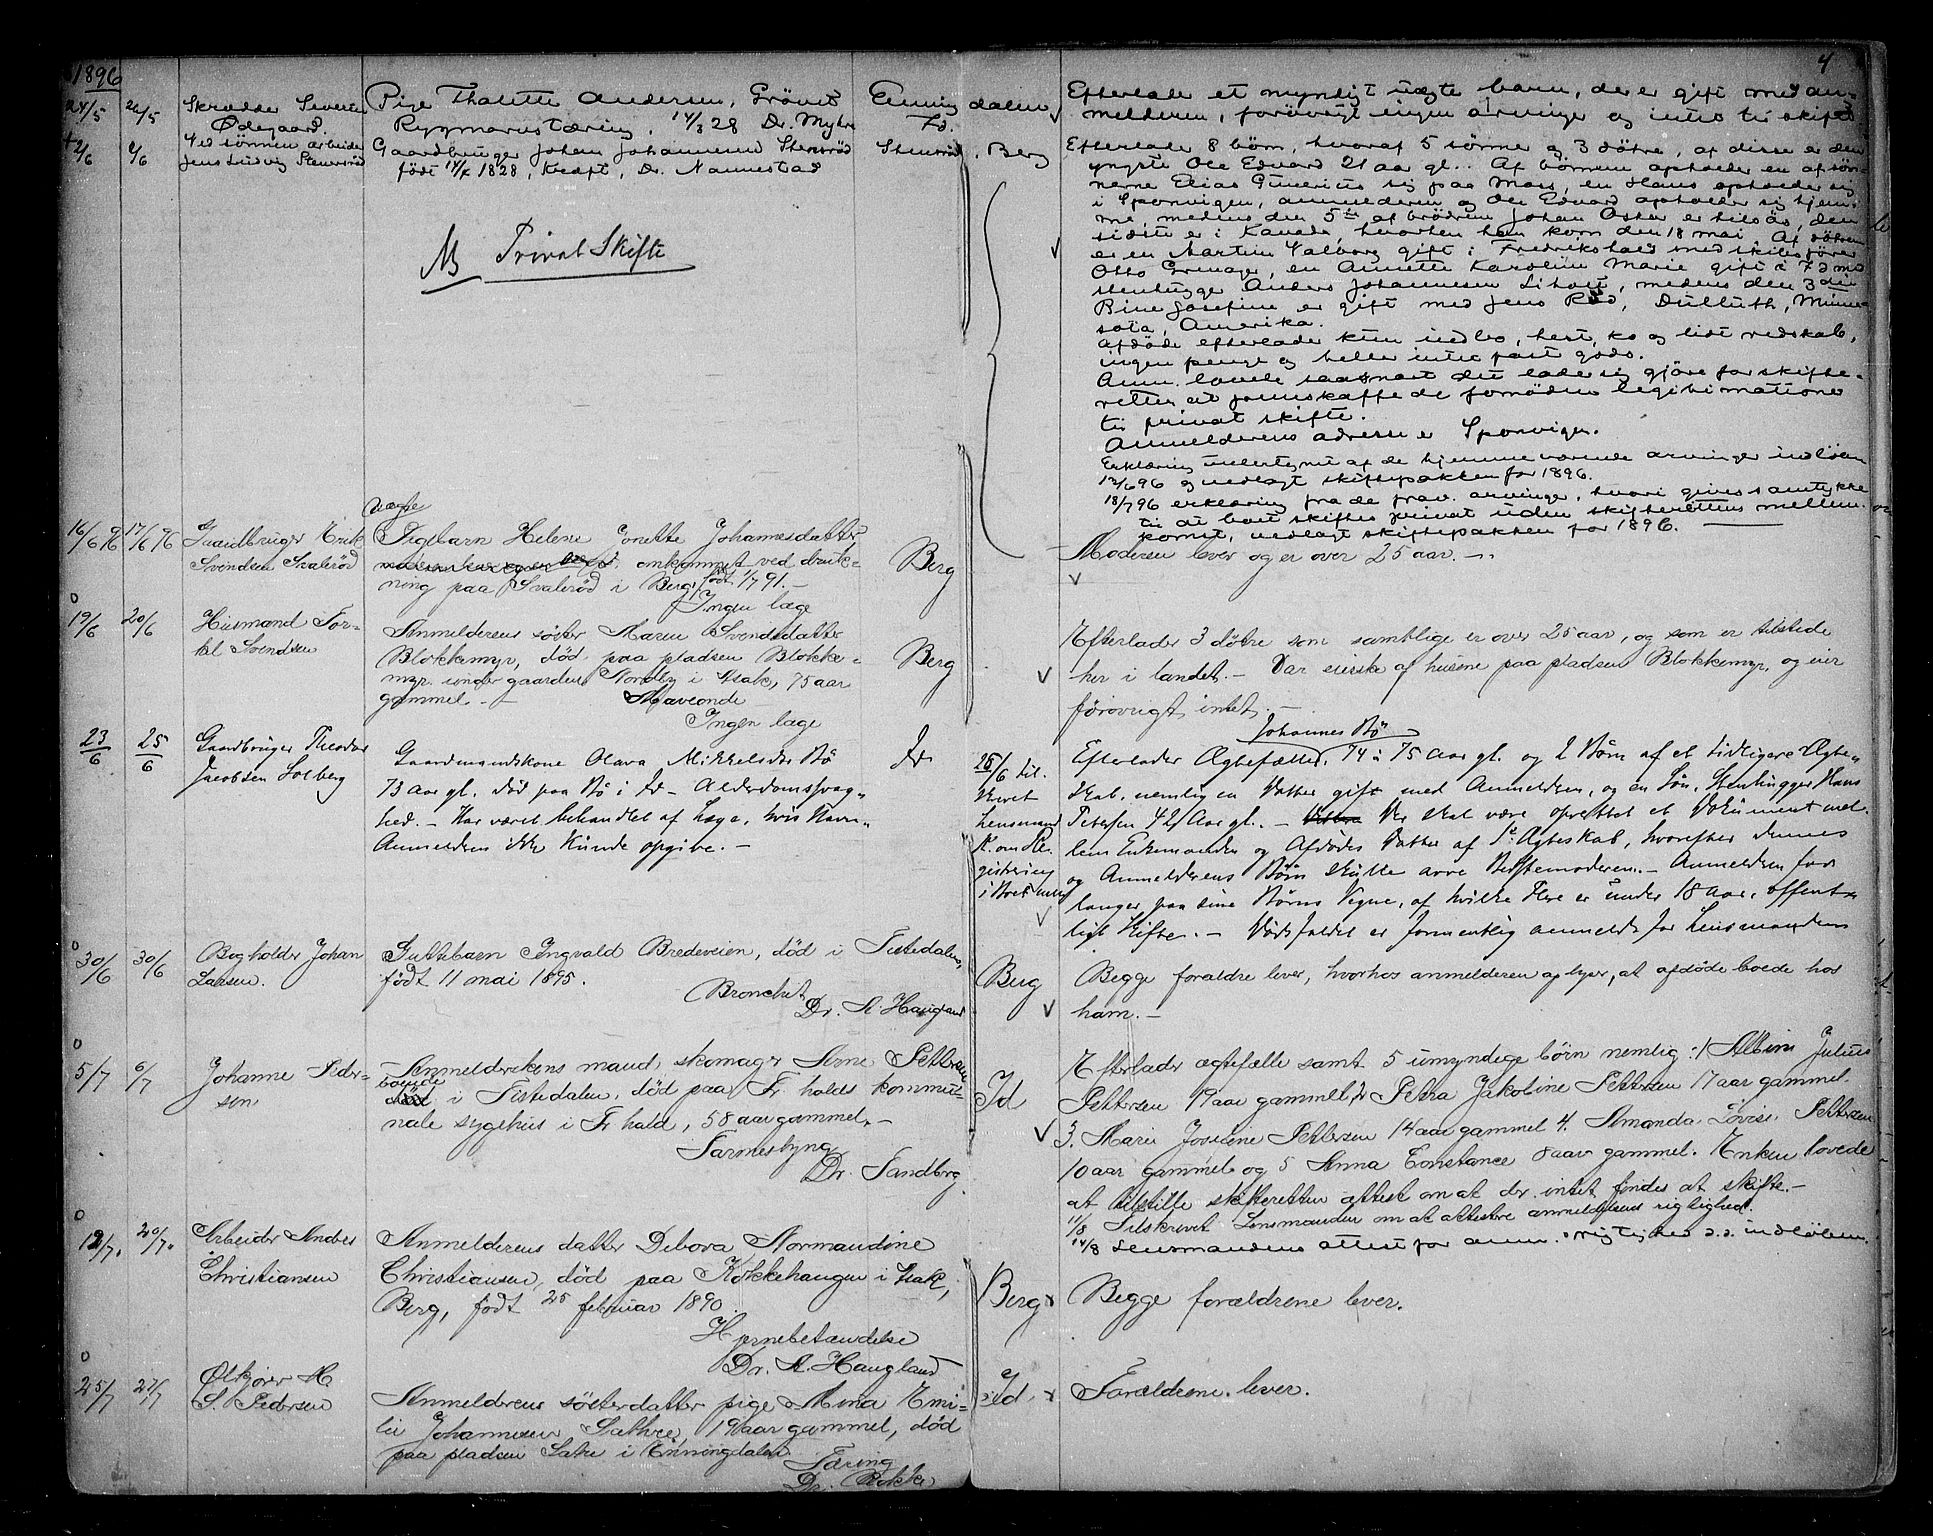 1896
4
24/5 26/5 Skrædder Severin Ødegaard.
Pige Thalette Andersen, Grönet
Rygmarvstæring, 14/3 28 Dr. Myhre
Enningdalen
Id.
Efterlader et myndigt uægte barn, der er gift med an-
melderen, forövrigt ingen arvinger og intet til skifte
2/6 6/6 Ved sönnen arbeider
Jens Ludvig Stensrød
Gaardbruger Johan Johannesen Stensrød
født 14/4 1828, Kræft, Dr. Nannestad
Stensrød, Berg
Privat Skifte
Efterlader 8 börn, hvoraf 5 sönner og 3 döttre, af disse er den
yngste Ole Edvard 21 aar gl.. Af börnene opholder en af söN-
nerne Elias Gunerius sig paa Moss, en Hans opholder sig
i Sponvigen, anmelderen og Ole Edvard opholder sig hjem-
me, medens den 5te af brödrene Johan Oskar er tilsös, den
sidste er i Kanada, hvorhen han kom den 18 mai. Af döttrene
er en Martine Valborg gift i Fredrikshald med skibsförer
Otto Grenager, en Annette Karoline Marie gift i Id med
stenhugger Anders Johannesen Liholt, medens den 3die
Bine Josefine er gift med Jens Rød, Dulluth, Minne-
sota, Amerika.
Afdöde efterlader kun indbo, hest, ko og lidt redskab,
ingen penge og heller intet fast gods.
Anm. lovede saasnart det lader sig gjöre for skifte-
retten at fremskaffe de fornödne legitimationer
til privat skifte.
Anmelderens adresse er Sponvigen.
Erklæring undertegnet af de hjemmeværende arvinger indlöben
12/6 96 og nedlagt skiftepakken for 1896.
18/7 96 erklæring fra de frav. arvinger, hvori gives samtykke
til at boet skiftes privat uden skifterettens mellem-
komst, nedlagt skiftepakken for 1896.
16/6 96 17/6 96 Gaardbruger Erik
Svendsen Svalerød
uægte
Pigebarn Helene Jonette Johannesdatter,
omkommet ved druk-
ning paa Svalerød i Berg, født 1/7 91.-
Ingen læge
Berg
Moderen lever og er over 25 aar.-
19/6 20/6 Husmand Tor-
kel Svendsen
Anmelderens söster Maren Svendsdatter
Blokkemyr, död paa pladsen Blokke-
myr under gaarden Nordby i Asak, 75 aar
gammel.-
Mavtonde
Ingen læge
Berg
Efterlader 3 döttre som samtlige er over 25 aar, og som er tilstede
her i landet.- Var eierske af husene paa pladsen Blokkemyr, og eier
förövrigt intet.-
23/6 25/6 Gaardbruger Theodor
Jacobsen Solberg
Gaardmandskone Olava Mikkelsdtr Bö
73 Aar gl. död paa Bö i Id - Alderdomssvag-
hed.- Har været behandlet af Læge, hvis Navn
Anmelderen ikke kunde opgive.-
Id
25/6 til-
skrevet
Lensmand
K. om Re-
gistrering
i Boet
Johannes Bö
Efterlader Ægtefælle, 74 à 75 Aar gl. og 2 Börn af et tidligere Ægte-
skab, nemlig en Datter gift med Anmelderen, og en Sön, Stenhugger Hans
Petersen 42 Aar gl. - Der skal være oprettet et Dokument mel-
lem Enkemanden og Afdödes Datter af 1ste Ægteskab, hvorefter dennes
og Anmelderens Börn skulle arve Bedstemoderen.- Anmelderen for-
langer paa sine Börns Vegne, af hvilke Flere er under 18 Aar, offent-
ligt Skifte.- Dödsfaldet er formentlig anmeldt for Lensmanden
30/6 30/6 Bogholder Johan
Larsen.
Guttebarn Ingvald Bredeveien, död i Tistedalen,
født 11 mai 1895.
Bronchit
Dr. A. Haugland
Berg
Begge forældre lever, hvorhos anmelderen oplyser, at afdöde boede hos
ham.-
5/7 6/7 Johanne Peder-
sen
Anmelderskens mand, skomager Arne Pettersen
boende
i Tistedalen, död paa Fr.halds kommu-
nale sygehus i Fr.hald, 58 aar gammel.-
Tarmeslyng
Dr. Sandberg.
Id
Efterlader ægtefælle samt 5 umyndige börn nemlig: 1 Albin Julius
Pettersen 19 aar gammel, 2 Petra Jakobine Pettersen 17 aar gammel
3. Marie Josefine Pettersen 14 aar gammel 4. Amanda Lovise Pettersen
10 aar gammel og 5 Anna Constance 8 aar gammel. Enken lovede
at tilstille skifteretten attest om at der intet findes at skifte.-
11/8 Tilskrevet Lensmanden om at attestere anmeldelsens rigtighed.
14/8 Lensmandens attest for anm. rigtighed d.d. indlöben.
12/7. 20/7. Arbeider Anders
Christiansen
Anmelderens datter Debora Normandine
Christiansen, död paa Kokkehaugen i Asak,
Berg, født 25 februar 1890.
Hjernebetændelse
Dr. A. Haugland
Berg
Begge forældrene lever.
25/7 27/7 Ölkjörer M.
S. Pedersen
Anmelderens sösterdatter pige Mina Emi-
lie Johannesen Sathre, 19 aar gammel, död
paa pladsen Satre i Enningdalen
Tæring
Dr. Bokke
Id
Forældrene lever.